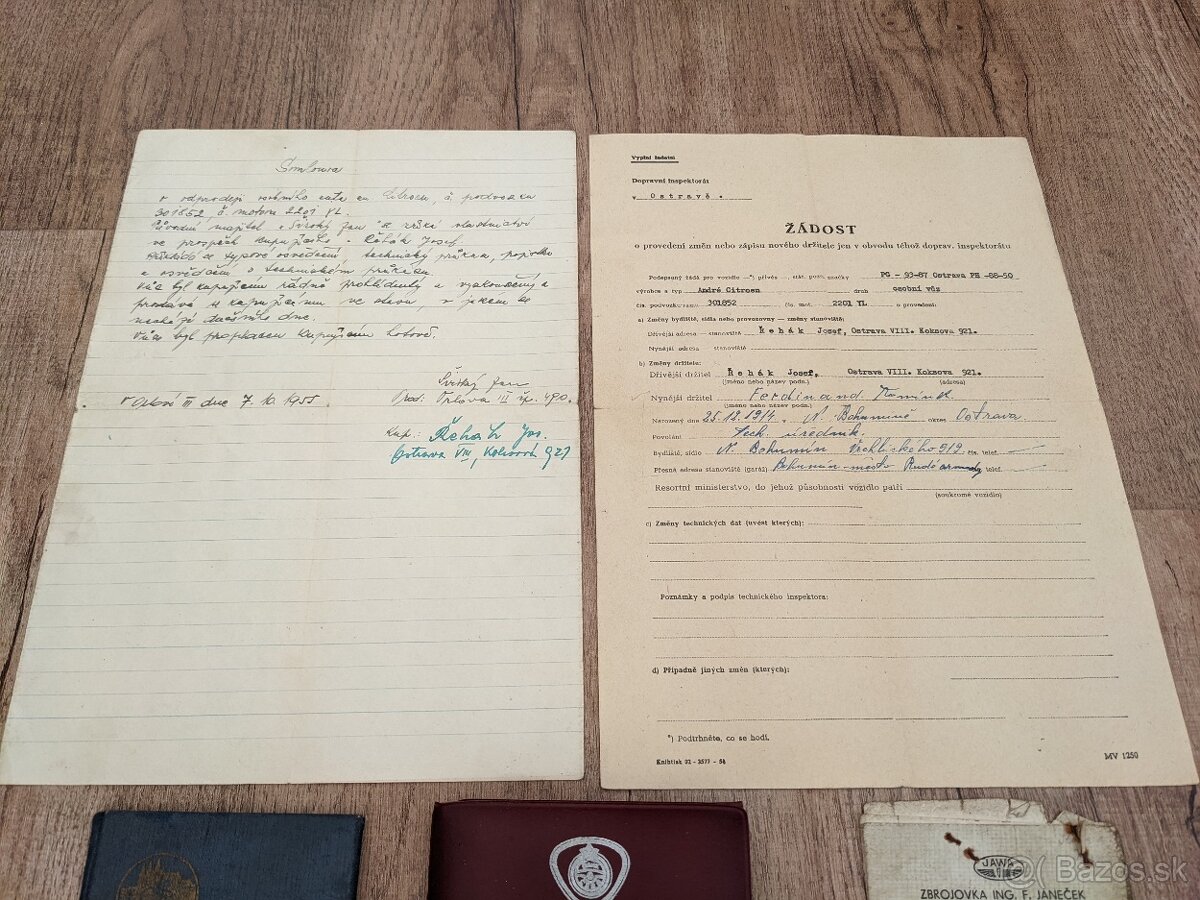 Smlouva
o odprodeji osobního auta zn. Citroen, č. podvozku
301852, č. motoru 2201 YL.
Původní majitel Široký Jan se zříká vlastnictví
ve prospěch kupujícího Řehák Josef
typové osvědčení, technický průkaz,
a osvědčení o technickém průkazu.
Vůz byl kupujícím řádně prohlédnutý a vyzkoušený a
prodává se kupujícímu ve stavu, v jakém se
nachází dnešního dne.
Vůz byl proplacen kupujícím hotově.
Široký Jan
Prod. Orlová III čp. 490.
V Orlové III dne 7. 10. 1955
Kup.: Řehák Jos.
Ostrava VIII, Koksová 921
Vyplní žadatel
Dopravní inspektorát
v Ostravě.
ŽÁDOST
o provedení změn nebo zápisu nového držitele jen v obvodu téhož doprav. inspektorátu
Podepsaný žádá pro vozidlo —*) přívěs, stát. pozn. značky PG -93-87 Ostrava PH -88-50
výrobce a typ André Citroen druh osobní vůz
čís. podvozku 301852 čís. mot. 2201 YL o provedení:
a) Změny bydliště, sídla nebo provozovny — změny stanoviště:
Dřívější adresa — stanoviště Řehák Josef, Ostrava VIII. Koksova 921.
Nynější adresa stanoviště
b) Změny držitele:
Dřívější držitel Řehák Josef, Ostrava VIII. Koksova 921.
(jméno nebo název podn.) (adresa)
Nynější držitel Ferdinand Kominek
(jméno nebo název podn.)
Narozený dne 25.12.1914 v N. Bohumíně okres Ostrava
Povolání tech. úředník
Bydliště, sídlo N. Bohumín Vrchlického 519. čís. telef.
Přesná adresa stanoviště (garáž) Bohumín-město Rudé armády telef.
Resortní ministerstvo, do jehož působnosti vozidlo patří
(soukromé vozidlo)
c) Změny technických dat (uvést kterých):
Poznámky a podpis technického inspektora:
d) Případně jiných změn (kterých):
*) Podtrhněte, co se hodí.
Knihtisk 22 - 3577 - 56
MV 1250
JAWA
ZBROJOVKA ING. F. JANEČEK
Bazos.sk